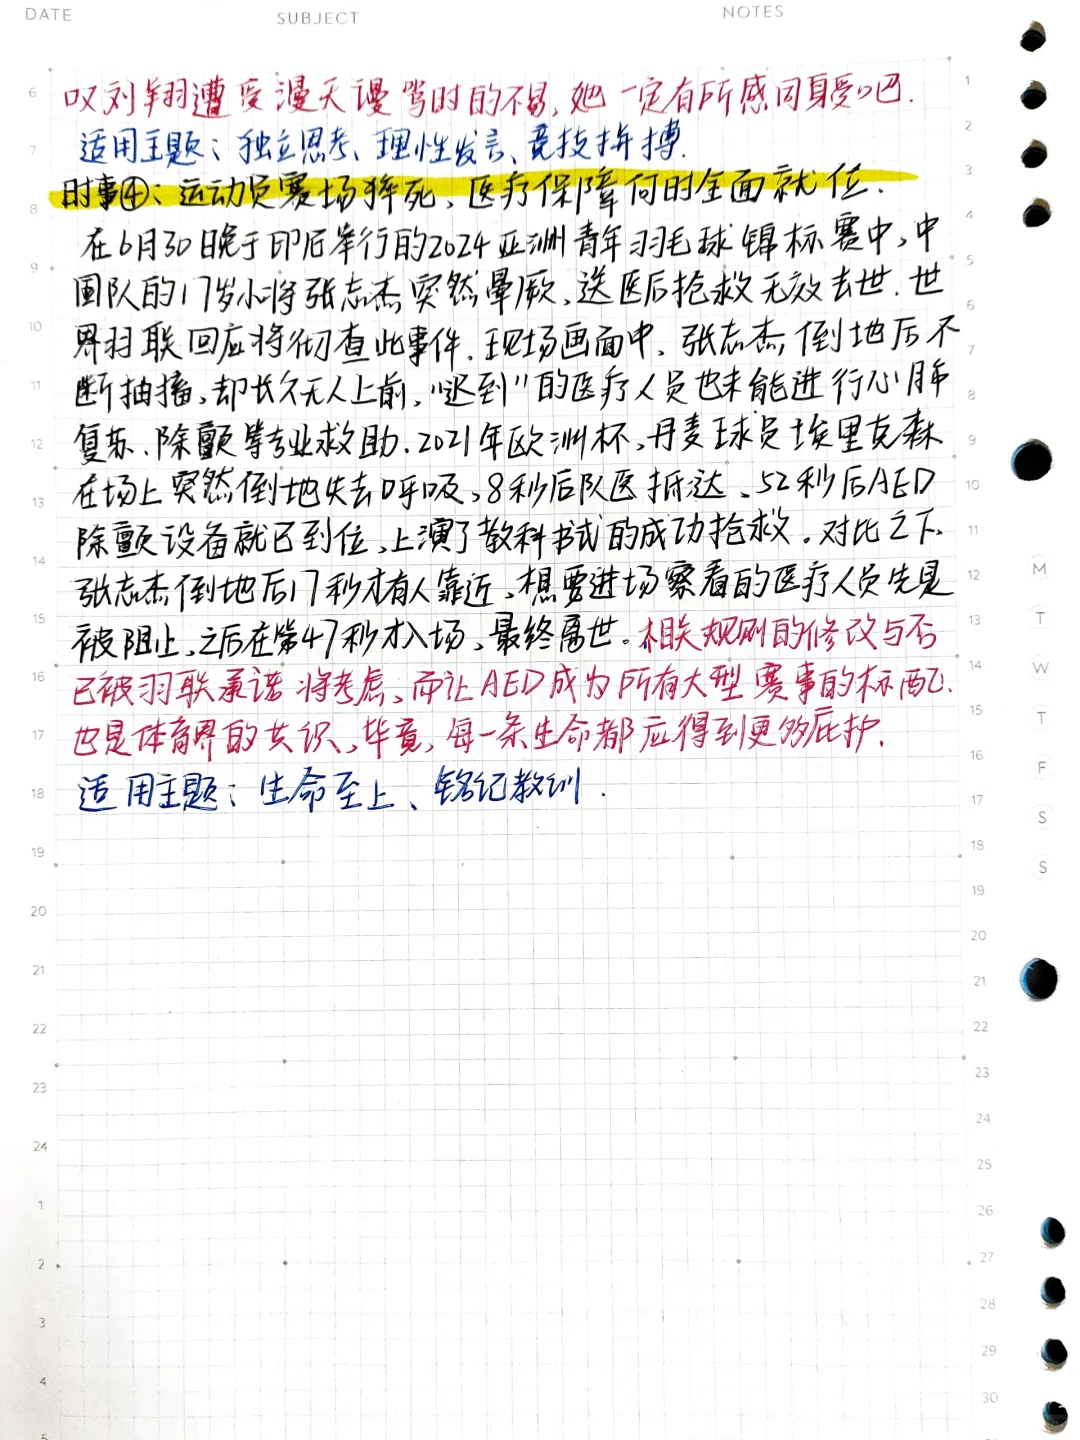 DATE
SUBJECT
NOTES
叹刘翔遭受漫天谩骂时的不易,她一定有所感同身受吧.
适用主题:独立思考、理性发言、竞技拼搏.
时事④:运动员赛场猝死,医疗保障何时全面就位.
在6月30日晚于印尼举行的2024亚洲青年羽毛球锦标赛中,中
国队的17岁小将张志杰突然晕厥,送医后抢救无效去世.世
界羽联回应将彻查此事件.现场画面中,张志杰倒地后不
断抽搐,却长久无人上前,“迟到”的医疗人员也未能进行心肺
复苏、除颤等专业救助.2021年欧洲杯,丹麦球员埃里克森
在场上突然倒地失去呼吸,8秒后队医抵达、52秒后AED
除颤设备就已到位,上演了教科书式的成功抢救.对比之下,
张志杰倒地后17秒才有人靠近,想要进场察看的医疗人员先是
被阻止,之后在第47秒才入场,最终离世。相关规则的修改与否
已被羽联承诺将考虑,而让AED成为所有大型赛事的标配,
也是体育界的共识,毕竟,每一条生命都应得到更多庇护.
适用主题:生命至上、铭记教训.
6
7
8
9
10
11
12
13
14
15
16
17
18
19
20
21
22
23
24
1
2
3
4
5
1
2
3
4
5
6
7
8
9
10
11
12
13
14
15
16
17
18
19
20
21
22
23
24
25
26
27
28
29
30
M
T
W
T
F
S
S